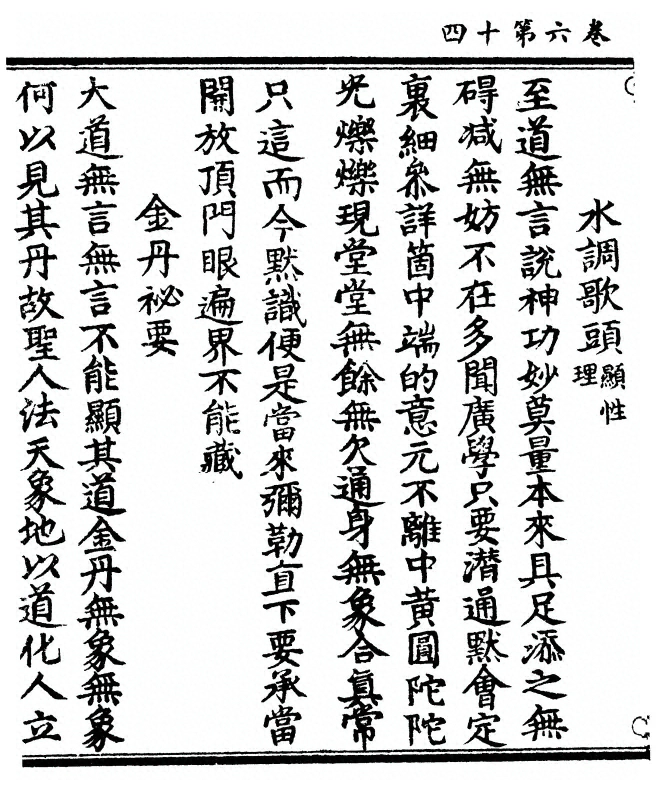 四十第六卷
水調歌頭顯性理
至道無言說神功妙莫量本來具足添之無
碍减無妨不在多聞廣學只要潛通默會定
裏細叅詳箇中端的意元不離中黄圓陀陀
光爍爍現堂堂無餘無欠通身無象合真常
只這而今默識便是當來彌勒直下要承當
開放頂門眼遍界不能藏
金丹祕要
大道無言無言不能顯其道金丹無象無象
何以見其丹故聖人法天象地以道化人立